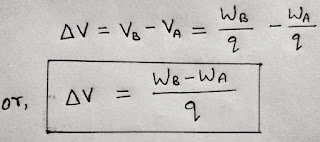 ΔV = V_B - V_A = W_B/q - W_A/q
or, ΔV = W_B - W_A/q